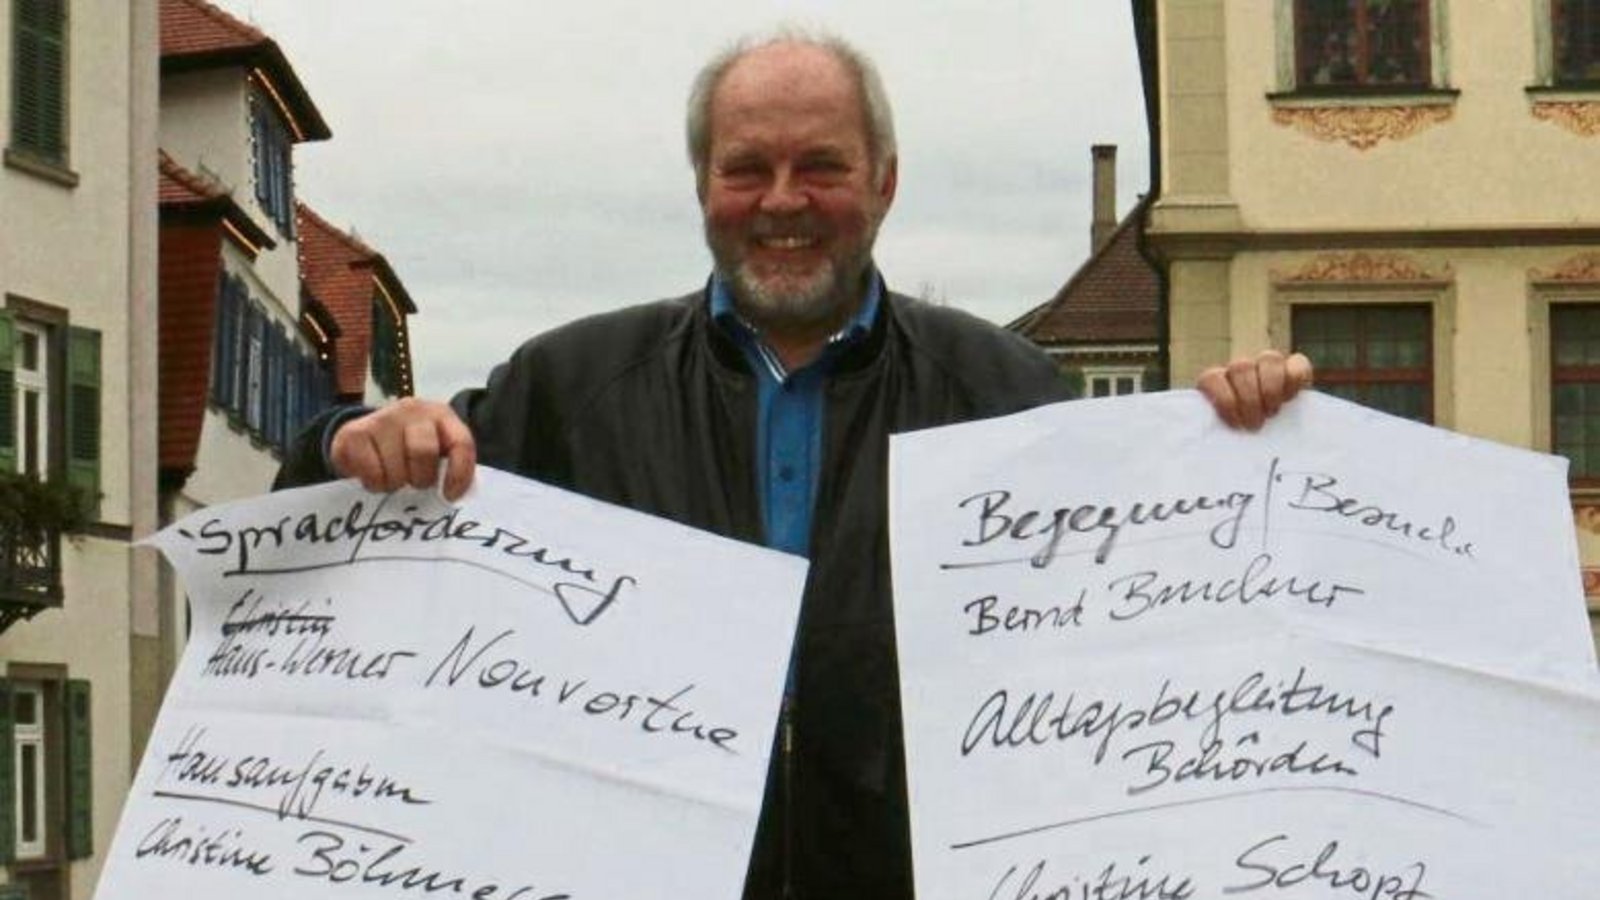 Sprachförderung
Christin
Hans-Werner Nonvortne
Hausaufgaben
Christine
Begegnung/Besuche
Bernd Bruckner
Alltagsbegleitung
Behörden
Christine Schopf